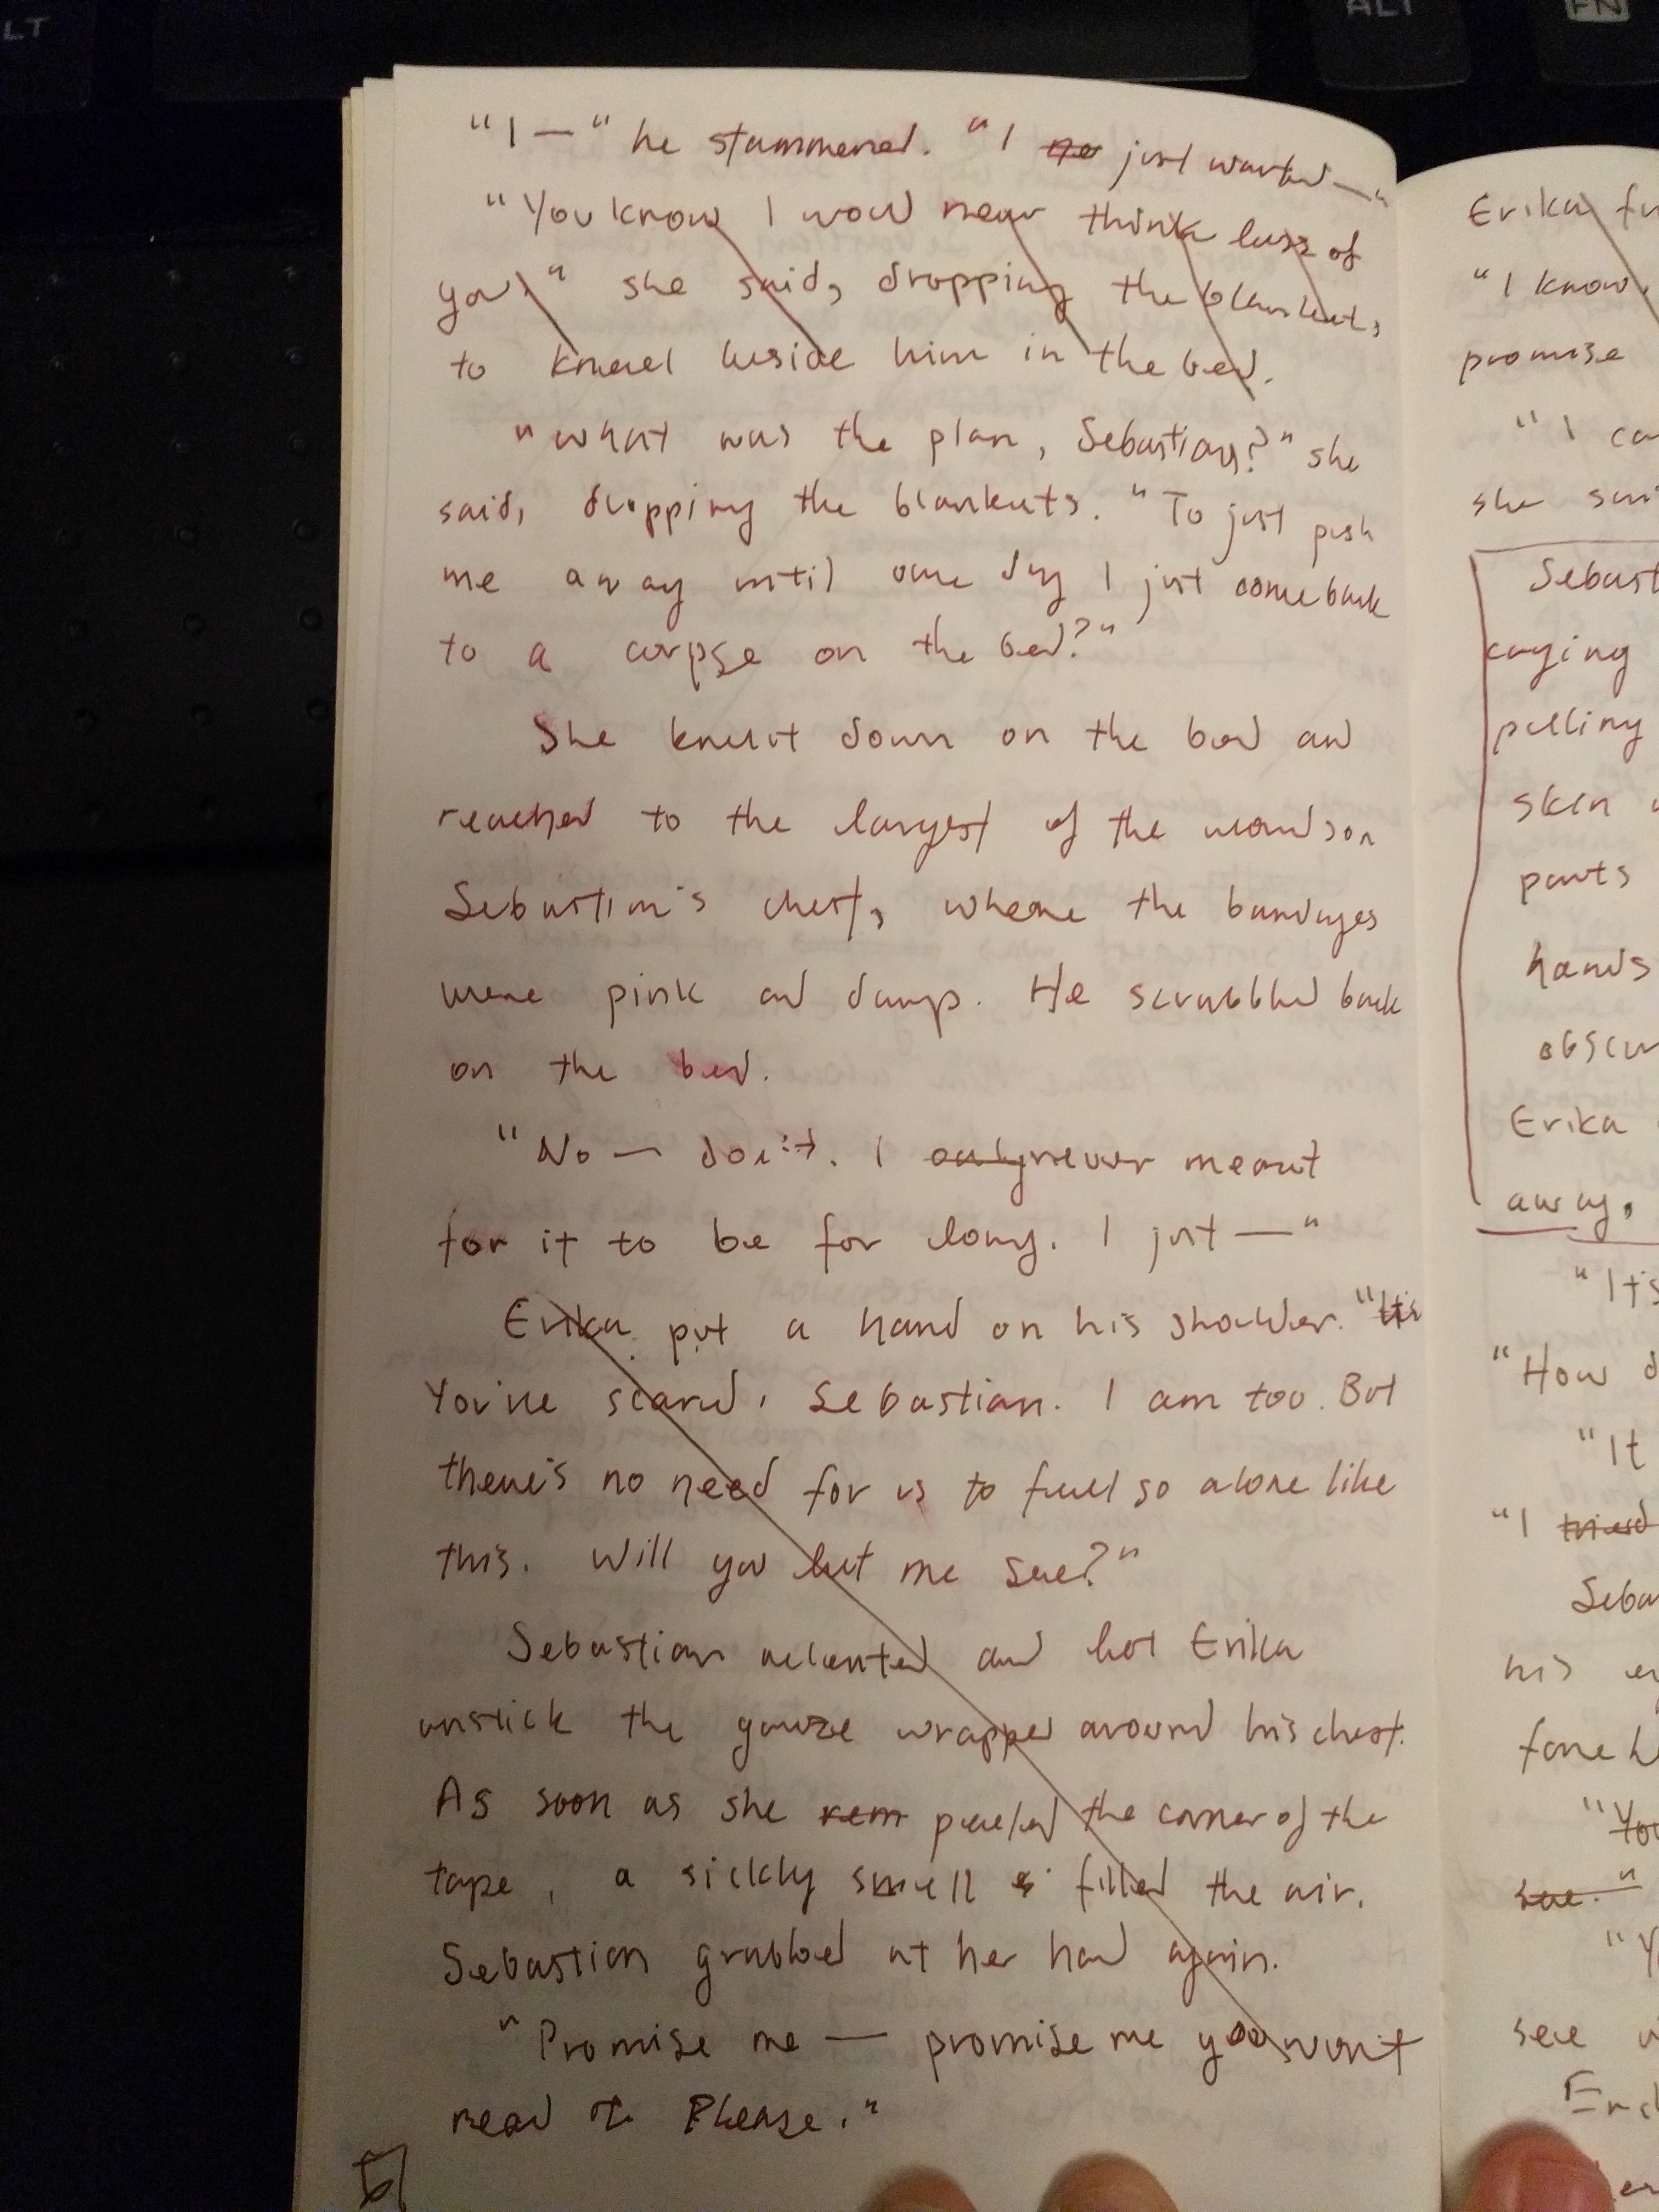 LT
ALT
FN
"I —" he stammered. "I ne just wanted —"
"You know I would never think less of
you," she said, dropping the blankets,
to kneel beside him in the bed.
"What was the plan, Sebastian?" she
said, dropping the blankets. "To just push
me away until one day I just come back
to a corpse on the bed?"
She knelt down on the bed and
reached to the largest of the wounds on
Sebastian's chest, where the bandages
were pink and damp. He scrabbled back
on the bed.
"No — don't. I only never meant
for it to be for long. I just —"
Erika put a hand on his shoulder. "It's
You're scared, Sebastian. I am too. But
there's no need for us to feel so alone like
this. Will you let me see?"
Sebastian relented and let Erika
unstick the gauze wrapped around his chest.
As soon as she rem peeled the corner of the
tape, a sickly smell s filled the air.
Sebastian grabbed at her hand again.
"Promise me — promise me you won't
read it. Please."
Erika fu
"I know,
promise
"I ca
she sai
Sebast
crying
pulling
skin
parts
hands
obscur
Erika
away.
"It's
"How d
"It
"I tried
Seba
his ey
fore h
"You
see."
"Y
see
Eri
er